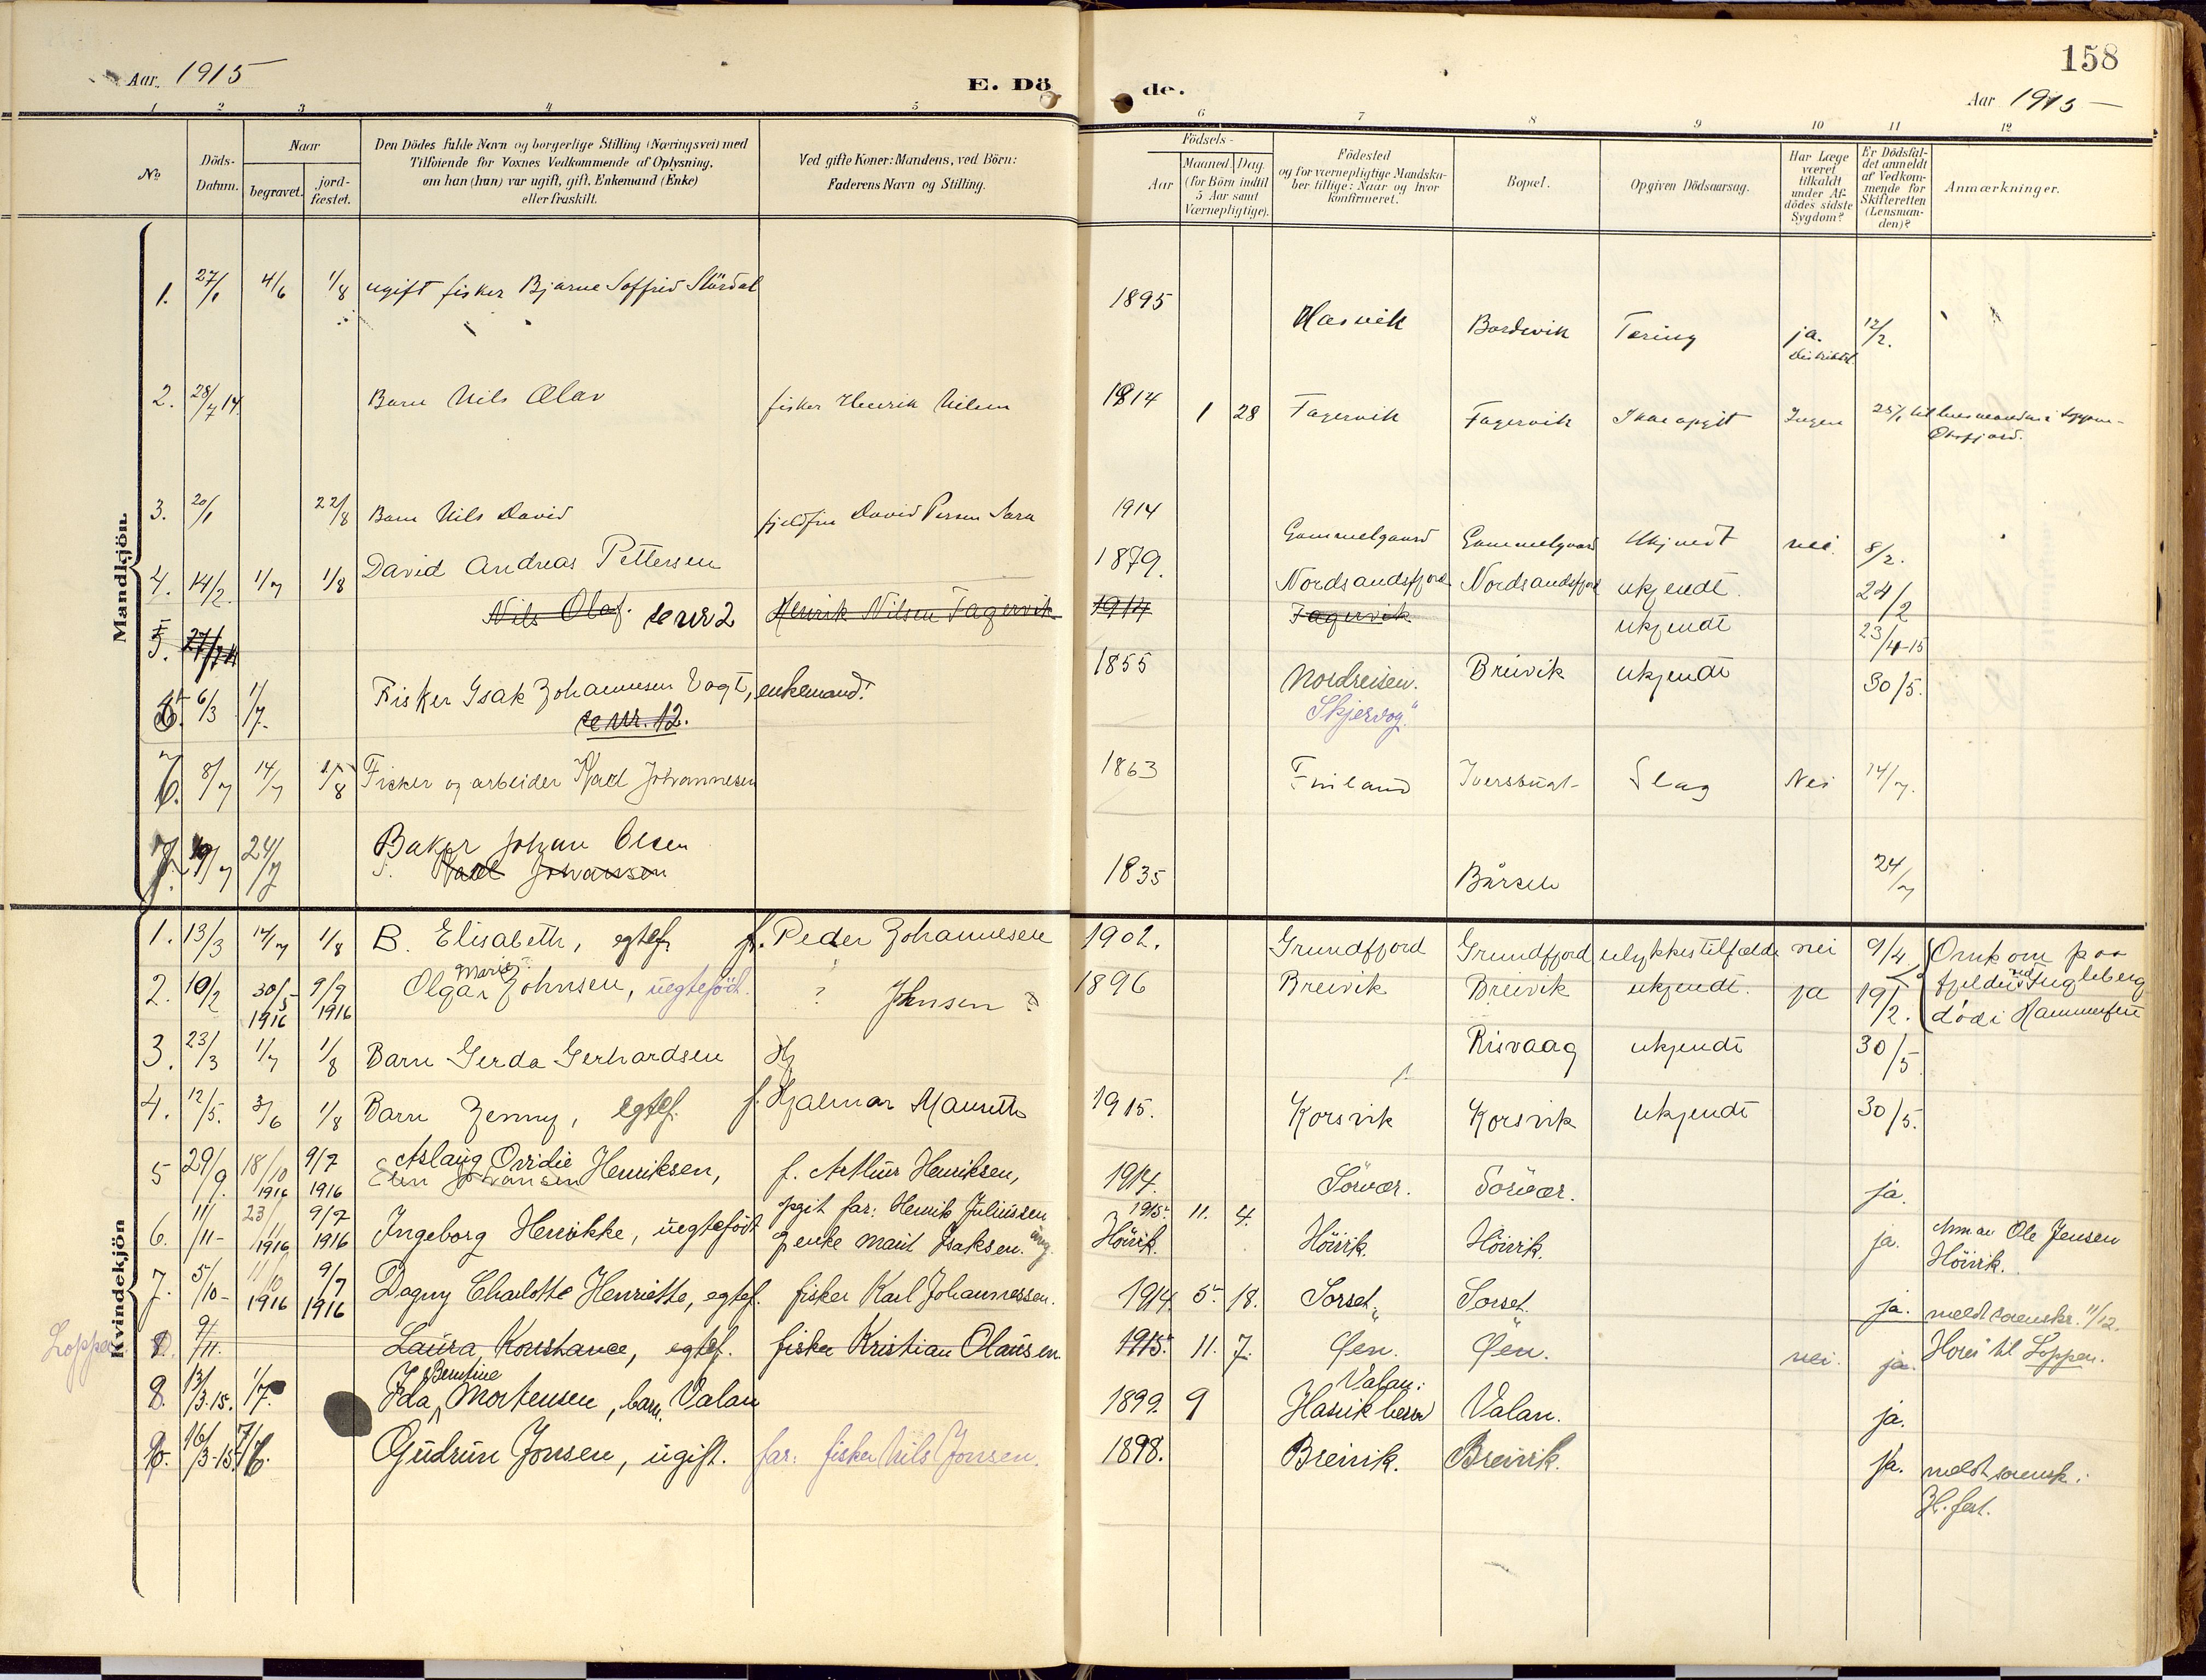 158
Aar. 1915
E. Döde.
Aar 1915 —
1 2 3 4 5 6 7 8 9 10 11 12
No.
Döds-Datum.
Naar
begravet.
jord-fæstet.
Den Dödes fulde Navn og borgerlige Stilling (Næringsvei) med
Tilföiende for Voxnes Vedkommende af Oplysning,
om han (hun) var ugift, gift, Enkemand (Enke)
eller fraskilt.
Ved gifte Koner: Mandens, ved Börn:
Faderens Navn og Stilling.
Födsels-
Aar
Maaned. Dag.
(for Börn indtil
5 Aar samt
Værnepligtige).
Födested
og for værnepligtige Mandska-
ber tillige: Naar og hvor
konfirmeret.
Bopæl.
Opgiven Dödsaarsag.
Har Læge
været
tilkaldt
under Af-
dödes sidste
Sygdom?
Er Dödsfal-
det anmeldt
af Vedkom-
mende for
Skifteretten
(Lensman-
den)?
Anmærkninger.
Mandkjön.
1. 27/1 4/6 1/8 ugift fisker Bjarne Soffrid Stördal 1895 Hasvik Bordvik Tæring ja. 12/2.
2. 28/7 14. Barn Nils Olav fisker Henrik Nilsen 1914 1 28 Fagervik Fagervik Ikke opgit Ingen 25/1 til lensmanden i Loppen-
Öksfjord.
3. 20/1 22/8 Barn Nils David fjeldfin David Persen Sara 1914 Gammelgaard Gammelgaard Ukjendt nei. 8/2.
4. 14/2. 1/7 1/8 David Andreas Pettersen 1879. Nordsandsfjord Nordsandsfjord ukjendt. 24/2
5. 27/7 14 Nils Olaf. se nr 2 Henrik Nilsen Fagervik 1914 Fagervik ukjendt 23/4-15
6/3 1/7. Fisker Isak Johannesen Vogt, enkemand. 1855 Nordreisen. Breivik ukjendt 30/5.
se nr. 12. "Skjervøg."
6. 8/7 14/7 1/8 Fisker og arbeider Karl Johannesen 1863 Finland Iversbugt Slag Nei 14/7.
7. 19/7 24/7 Baker Johan Olsen 1835 Bårsele 24/7
Karl Johanssen
Kvindekjön
1. 13/3 14/7 1/8 B. Elisabeth, egtef. f. Peder Johannesen 1902. Grundfjord Grundfjord ulykkestilfælde nei 9/4. Omkom paa
fjeldet ved Fugleberg
2. 10/2 30/5 1916 9/9 1916 Olga Marie Johnsen, uegtefödt. ? Johnsen ? 1896 Breivik Breivik ukjendt. ja 19/2. död i Hammerfest
3. 23/3 1/7 1/8 Barn Gerda Gerhardsen Hj Risvaag ukjendt 30/5
4. 12/5. 3/6 1/8 Barn Jenny, egtef. f. Hjalmar Mauseth 1915. Korsvik Korsvik ukjendt 30/5.
5 29/9. 18/10 1916 9/7 1916 Aslaug Ovidie Henriksen, f. Arthur Henriksen, 1914. Sörvær. Sörvær. ja.
Elen Johansen
6. 11/11- 23/11 1916 9/7 1916 Ingeborg Henrikke, uegtefödt opgit far: Henrik Juliussen 1915. 11. 4. Höivik. Höivik. ja. Anm av Ole Jensen
enke Marit Isaksen. Höivik. Höivik.
7. 5/10- 11/10 1916 9/7 1916 Dagny Charlotte Henriette, egtef. fisker Karl Johannessen. 1914. 5. 18. Sorset. Sorset. ja. meldt sorenskr. 11/12.
Loppen 8. 9/11. Laura Konstance, egtef. fisker Kristian Olausen. 1915. 11. 7. Öen. Öen. nei. ja. Hörer til Loppen.
8. 13/3-15. 1/7. Ida Berntine Mortensen, barn. Valan 1899. 9 Valan: Hasvik herred Valan. ja.
9. 16/3-15. 7/6. Gudrun Jonsen, ugift. far: fisker Nils Jonsen. 1898. Breivik. Breivik. ja. meldt sorensk.
H.fest.